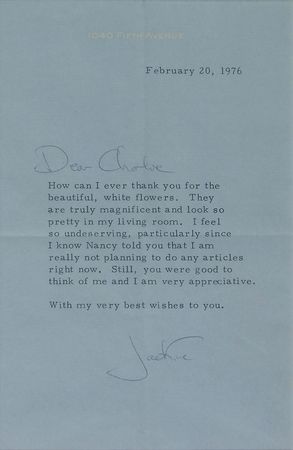 1040 FIFTH AVENUE
February 20, 1976
Dear
How can I ever thank you for the
beautiful, white flowers. They
are truly magnificent and look so
pretty in my living room. I feel
so undeserving, particularly since
I know Nancy told you that I am
really not planning to do any articles
right now. Still, you were good to
think of me and I am very appreciative.
With my very best wishes to you.
Jackie